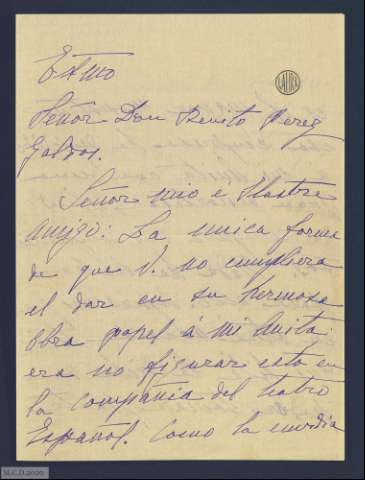 Exmo
Señor Don Benito Perez
Galdos.
Señor mio e Ilustre
amigo: La unica forma
de que V. no cumpliera
el dar en su hermosa
obra papel á mi Anita
era no figurar esta en
la compañia del teatro
Español. Como la envidia
N.C.D 2020